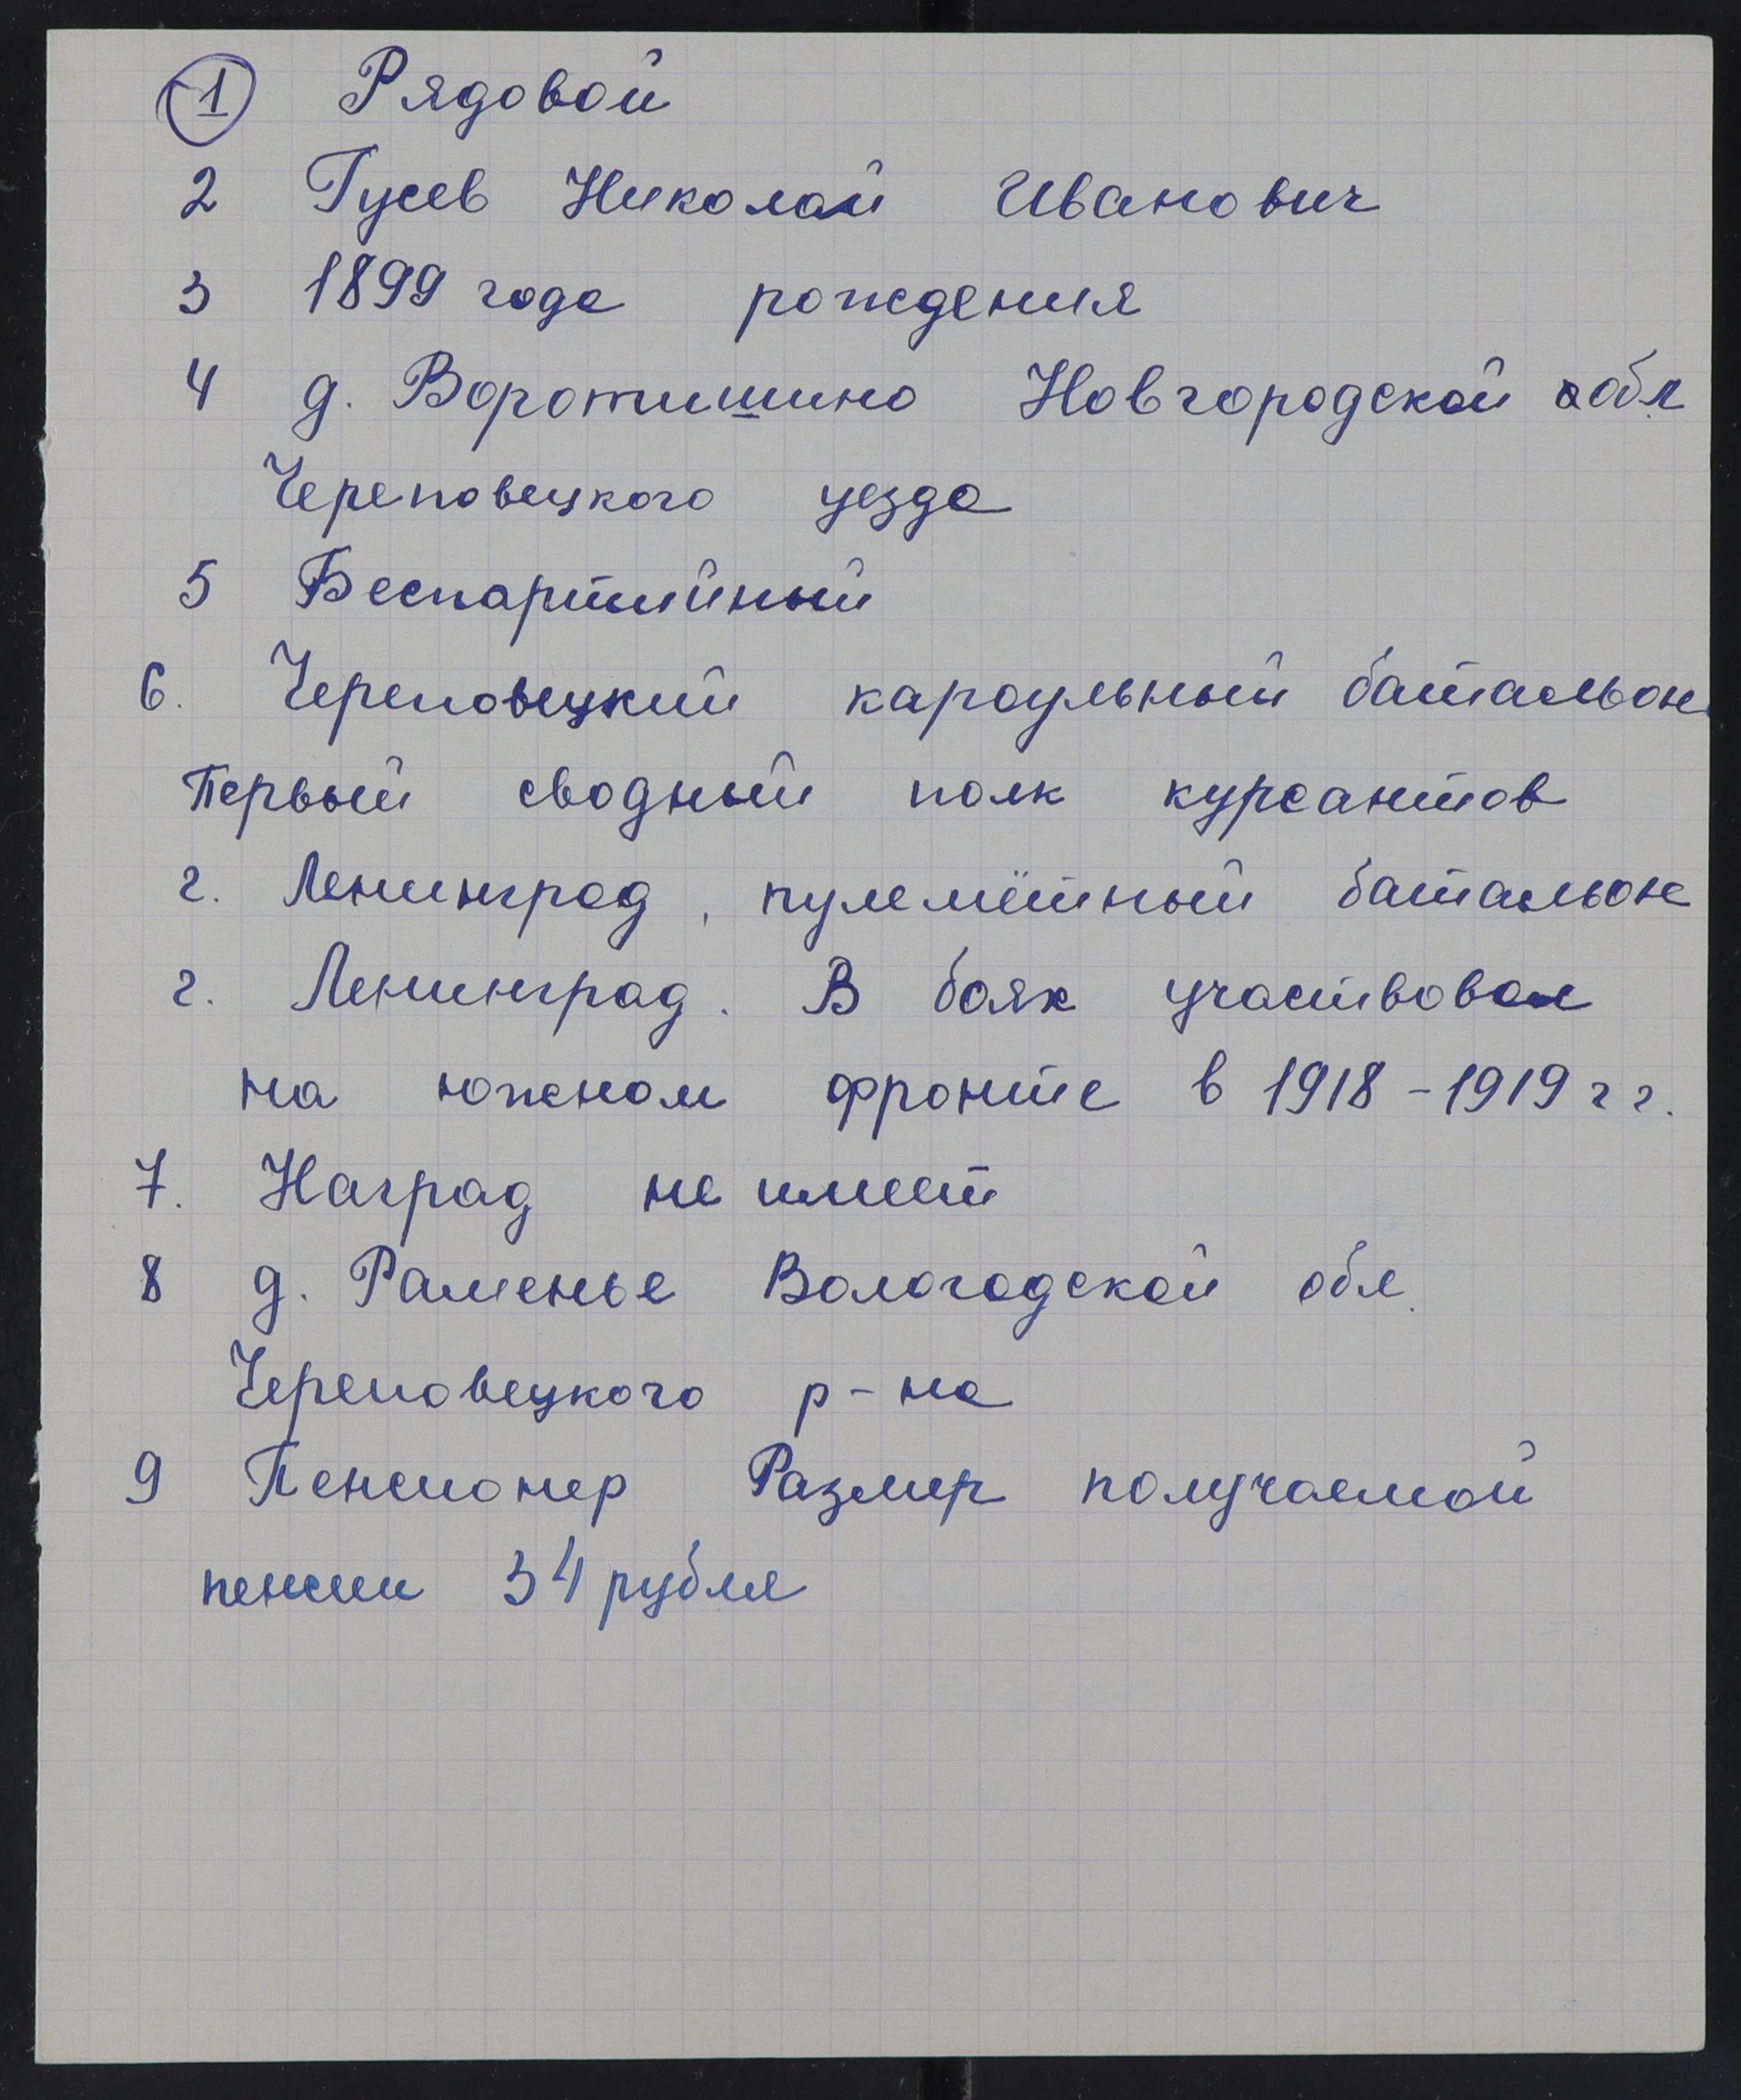 1 Рядовой
2 Гусев Николай Иванович
3 1899 года рождения
4 д. Воротишино Новгородской обл
Череповецкого уезда
5 Беспартийный
6. Череповецкий караульный батальон
Первый сводный полк курсантов
г. Ленинград, пулемётный батальон
г. Ленинград. В боях участвовал
на южном фронте в 1918-1919 г г.
7. Наград не имеет
8 д. Раменье Вологодской обл.
Череповецкого р-на
9 Пенсионер Размер получаемой
пенсии 34 рубля